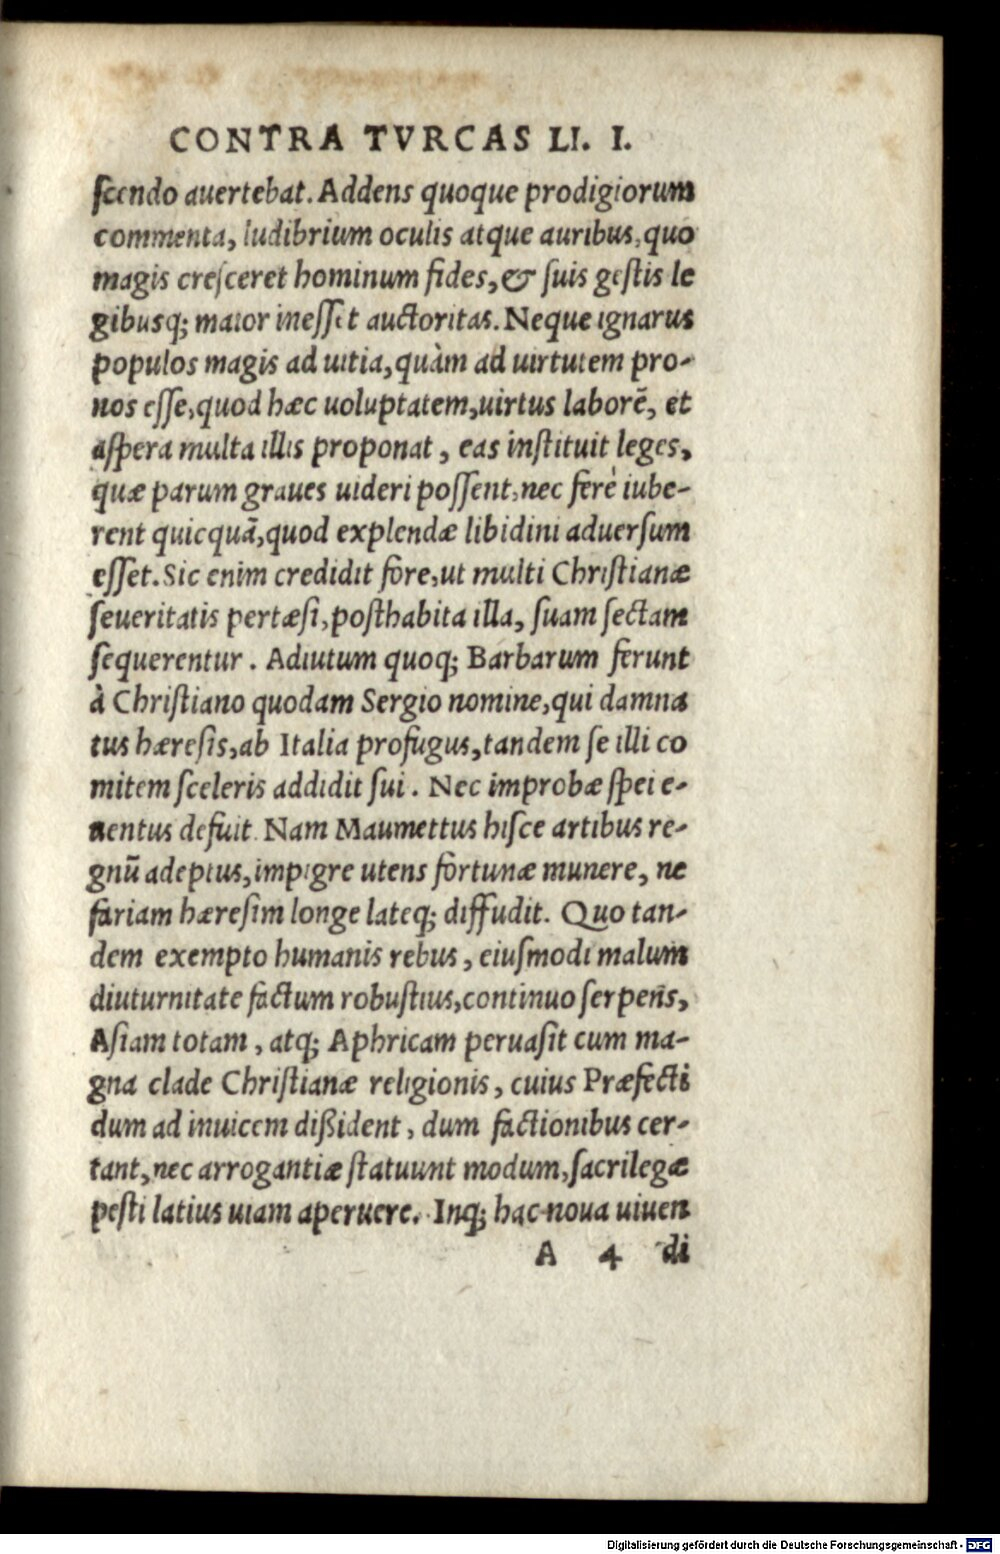 CONTRA TVRCAS LI. I.
ſcendo auertebat. Addens quoque prodigiorum
commenta, ludibrium oculis atque auribus, quo
magis creſceret hominum fides, & ſuis geſtis le
gibusq; maior ineſſet auctoritas. Neque ignarus
populos magis ad uitia, quàm ad uirtutem pro-
nos eſſe, quod hæc uoluptatem, uirtus laborē, et
aſpera multa illis proponat, eas inſtituit leges,
quæ parum graues uideri poſſent, nec ferè iube-
rent quicquā, quod explendæ libidini aduerſum
eſſet. Sic enim credidit fore, ut multi Chriſtianæ
ſeueritatis pertæſi, poſthabita illa, ſuam ſectam
ſequerentur. Adiutum quoq; Barbarum ferunt
à Chriſtiano quodam Sergio nomine, qui damna
tus hæreſis, ab Italia profugus, tandem ſe illi co
mitem ſceleris addidit ſui. Nec improbæ ſpei e-
uentus defuit. Nam Maumettus hiſce artibus re-
gnū adeptus, impigre utens fortunæ munere, ne
fariam hæreſim longe lateq; diffudit. Quo tan-
dem exempto humanis rebus, eiuſmodi malum
diuturnitate factum robuſtius, continuo ſerpens,
Aſiam totam, atq; Aphricam peruaſit cum ma-
gna clade Chriſtianæ religionis, cuius Præfecti
dum ad inuicem dißident, dum factionibus cer-
tant, nec arrogantiæ ſtatuunt modum, ſacrilegæ
peſti latius uiam aperuere. Inq; hac noua uiuen
A 4 di
Digitalisierung gefördert durch die Deutsche Forschungsgemeinschaft - DFG